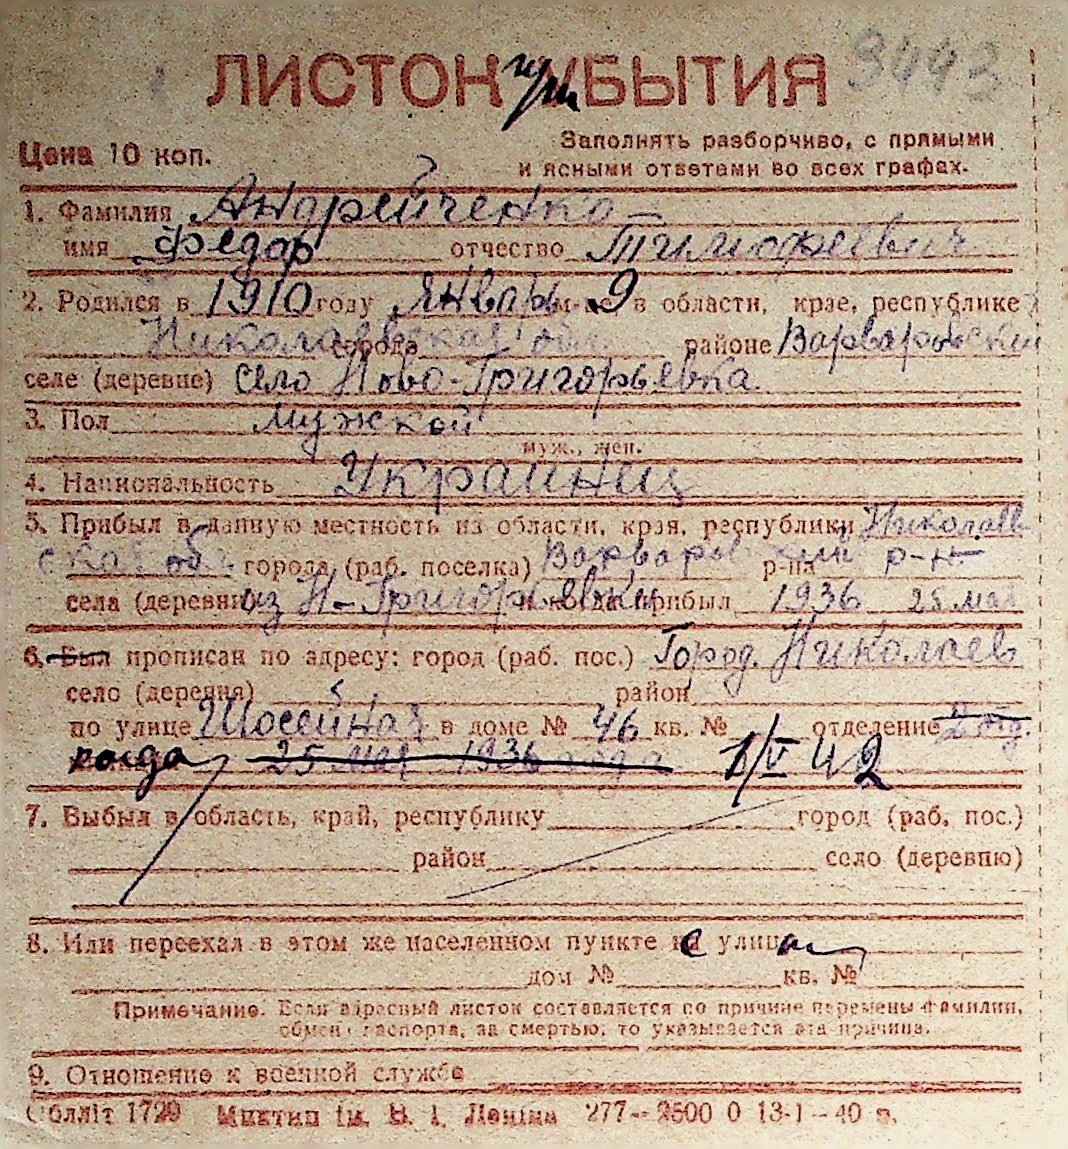 9443
ЛИСТОК при УБЫТИЯ
Цена 10 коп.
Заполнять разборчиво, с прямыми
и ясными ответами во всех графах.
1. Фамилия Андрейченко
имя Федор отчество Тимофеевич
2. Родился в 1910 году Январь м-це 9 в области, крае, республике
Николаевская обл. города районе Варваровский
селе (деревне) село Ново-Григорьевка
3. Пол мужской
муж., жен.
4. Национальность Украинец
5. Прибыл в данную местность из области, края, республики Николаев
ская обл города (раб. поселка) Варваровский р-на р-н
села (деревни) из Н-Григорьевки и когда прибыл 1936 25 мая
6. Был прописан по адресу: город (раб. пос.) Город. Николаев
село (деревня) район
по улице Шоссейная в доме № 46 кв. № отделение 2 отд.
когда 25 мая 1936 года 1/V 42
7. Выбыл в область, край, республику город (раб. пос.)
район село (деревню)
8. Или переехал в этом же населенном пункте с улицы
дом № кв. №
Примечание. Если адресный листок составляется по причине перемены фамилии,
обмена паспорта, за смертью, то указывается эта причина.
9. Отношение к военной службе
Облліт 1729 Миктип ім. В. І. Леніна 277—2500 0 13-1—40 п.